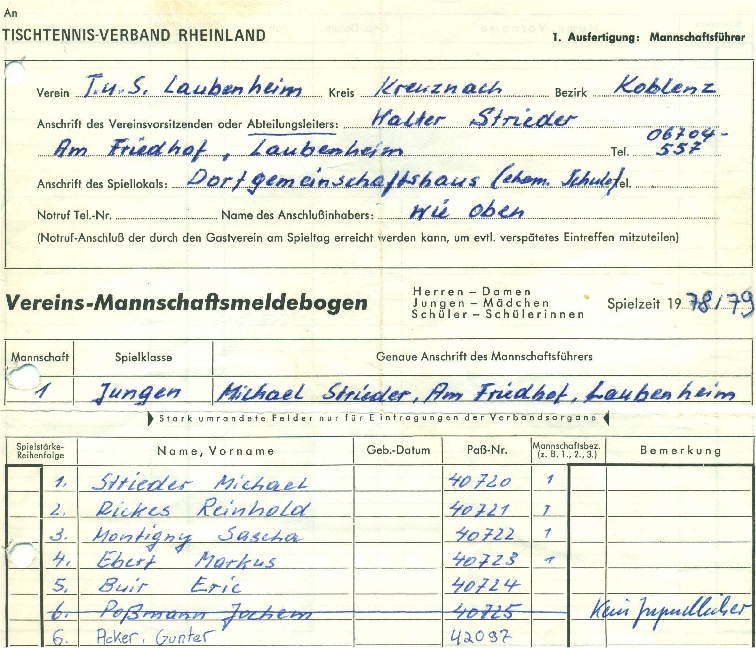 An
TISCHTENNIS-VERBAND RHEINLAND
1. Ausfertigung: Mannschaftsführer
Verein T.u.S. Laubenheim Kreis Kreuznach Bezirk Koblenz
Anschrift des Vereinsvorsitzenden oder Abteilungsleiters: Walter Strieder
Am Friedhof, Laubenheim Tel. 06704-557
Anschrift des Spiellokals: Dorfgemeinschaftshaus (ehem. Schule) Tel.
Notruf Tel.-Nr. Name des Anschlußinhabers: wie oben
(Notruf-Anschluß der durch den Gastverein am Spieltag erreicht werden kann, um evtl. verspätetes Eintreffen mitzuteilen)
Vereins-Mannschaftsmeldebogen
Herren – Damen
Jungen – Mädchen
Schüler – Schülerinnen
Spielzeit 19 78/79
Mannschaft Spielklasse Genaue Anschrift des Mannschaftsführers
1 Jungen Michael Strieder, Am Friedhof, Laubenheim
Stark umrandete Felder nur für Eintragungen der Verbandsorgane
Spielstärke-Reihenfolge Name, Vorname Geb.-Datum Paß-Nr. Mannschaftsbez. (z. B. 1., 2., 3.) Bemerkung
1. Strieder Michael 40720 1
2. Rickes Reinhold 40721 1
3. Montigny Sascha 40722 1
4. Ebert Markus 40723 1
5. Buir Eric 40724
6. Poßmann Jochem 40725 Kein Jugendlicher
6. Acker, Gunter 42097